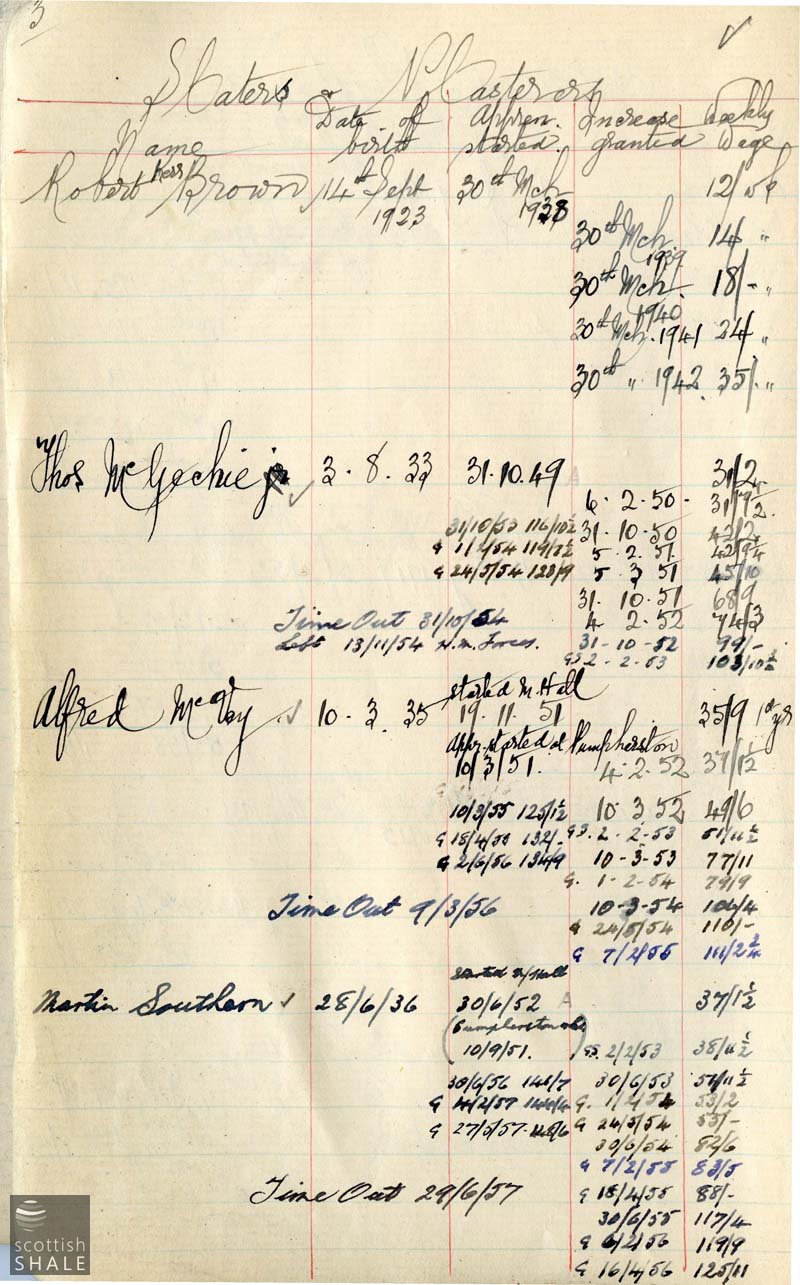 3 ✓
Slaters & Plasterers
Name Date of birth Appren. started Increase granted Weekly Wage
Robert Kerr Brown 14th Sept 1923 30th Mch 1938 12/ wk
30th Mch 1939 14/ "
30th Mch. 1940 18/- "
30th Mch. 1941 24/ "
30th " 1942. 35/- "
Thos McGechie jr ✓ 3 . 8 . 33 31.10.49 31/2
6 . 2 . 50 - 31/9½
31/10/53 116/10½ 31 . 10 . 50 42/2
G 1/2/54 119/7½ 5 . 2 . 51 42/9¼
G 24/5/54 128/9 5 . 3 51 45/10
31 . 10 . 51 68/9
Time Out 31/10/54 4 . 2 . 52 74/3
Left 13/11/54 H.M. Forces. 31-10-52 99/-
G 2-2-53 103/10½
started M. Hall
Alfred McVey ✓ 10 . 3 . 35 19 . 11 . 51 35/9 1st yr
Appr. started at Pumpherston
10/3/51. 4 . 2 . 52 37/1½
10/3/55 125/1½ 10 . 3 52 49/6
G 18/4/55 132/- G 2-2-53 51/11½
G 2/6/56 134/9 10-3-53 77/11
G. 1-2-54 79/9
Time Out 9/3/56 10-3-54 106/4
G 24/5/54 110/-
G 7/2/55 111/2¾
Started M/Hall
Martin Southern ✓ 28/6/36 30/6/52 A 37/1½
(Pumpherston
10/9/51.) G 2/2/53 38/11½
30/6/56 141/7 30/6/53 51/11½
G 4/2/57 G. 1/2/54 53/2
G 27/5/57 G 24/5/54 55/-
30/6/54 82/6
G 7/2/55 83/5
Time Out 29/6/57 G 18/4/55 88/-
30/6/55 117/4
G 6/2/56 119/9
G 16/4/56 125/11
scottish
SHALE